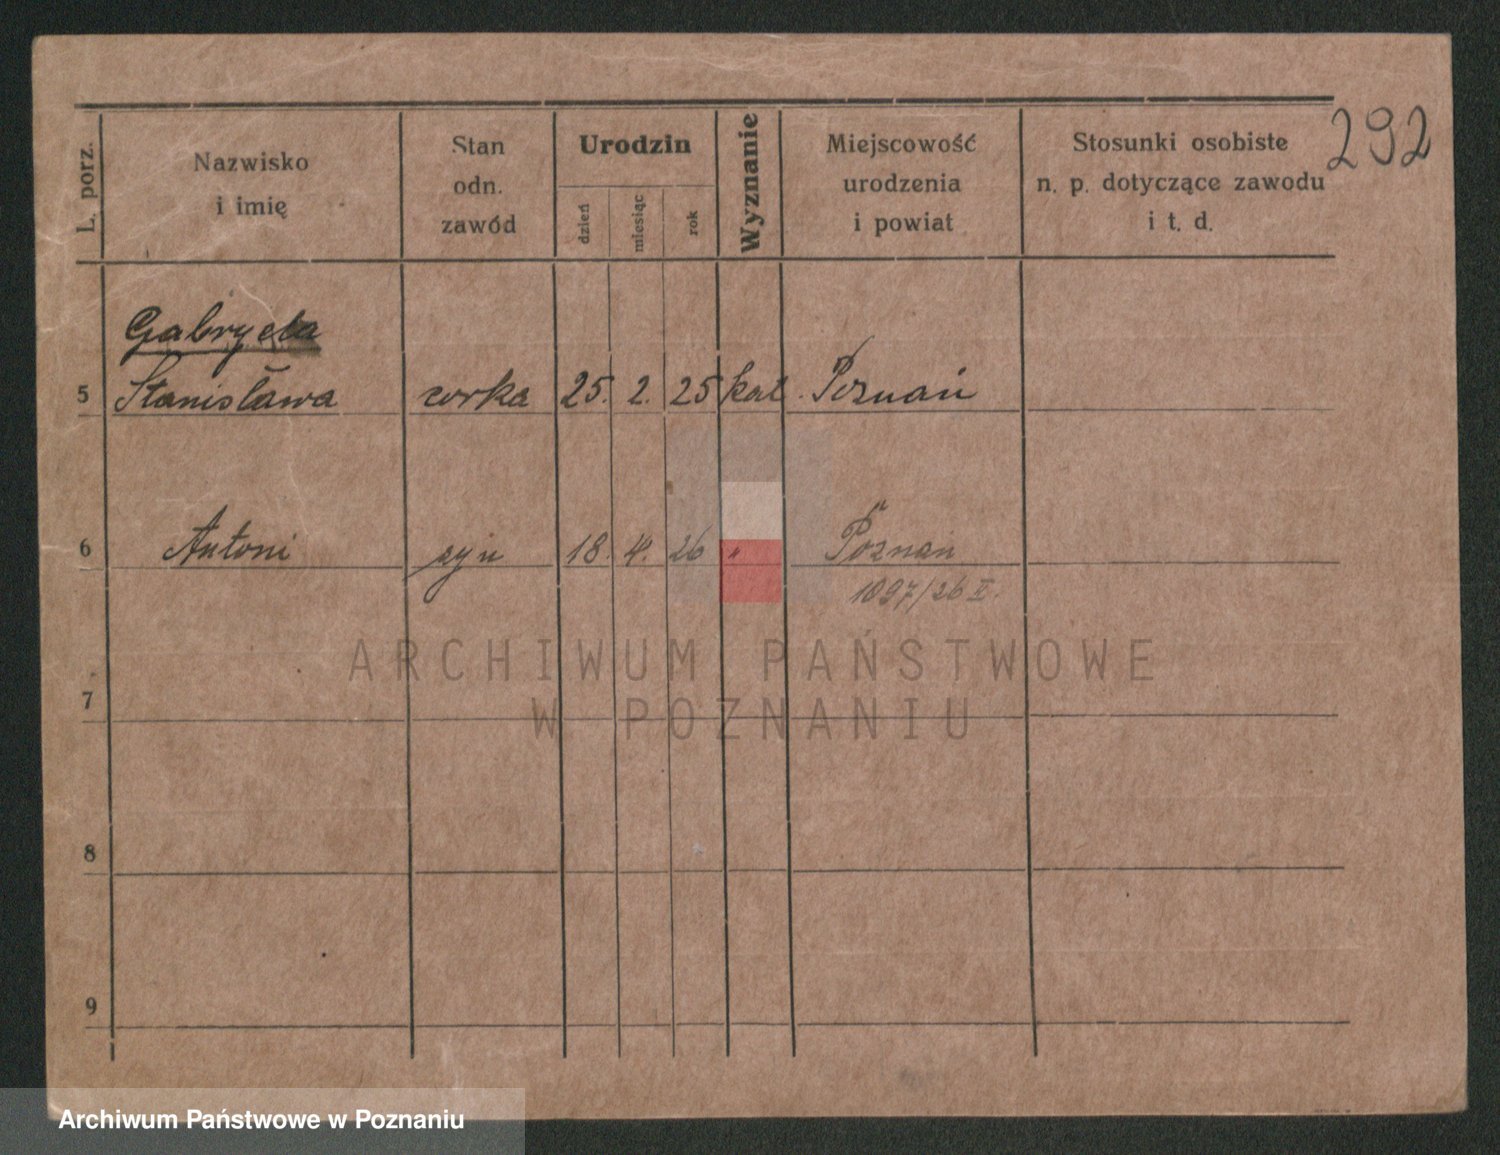 292
L. porz.
Nazwisko
i imię
Stan
odn.
zawód
Urodzin
dzień
miesiąc
rok
Wyznanie
Miejscowość
urodzenia
i powiat
Stosunki osobiste
n. p. dotyczące zawodu
i t. d.
Gabryela
5 Stanisława corka 25. 2. 25 kat. Poznań
6 Antoni syn 18. 4. 26 " Poznan
1097/26 II.
7
8
9
ARCHIWUM PAŃSTWOWE
W POZNANIU
Archiwum Państwowe w Poznaniu